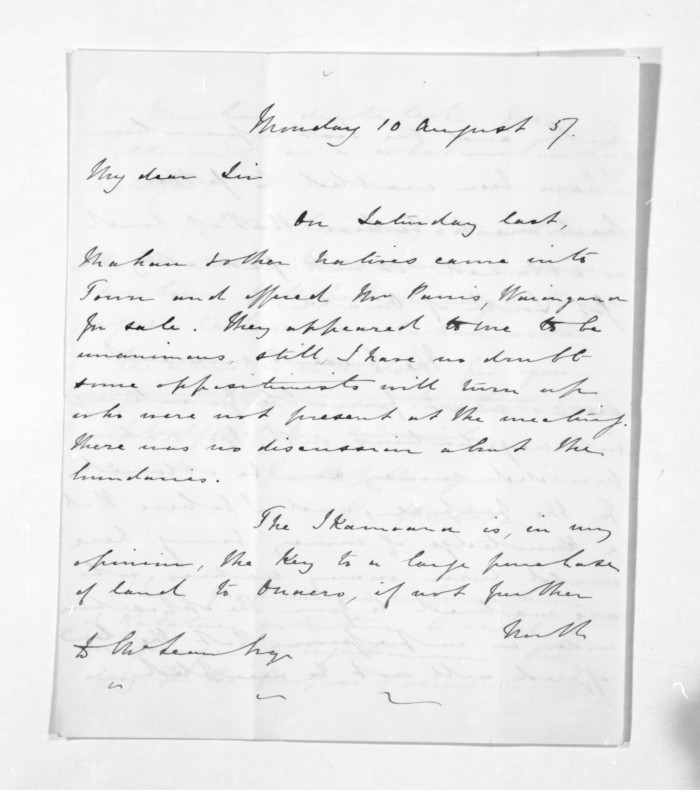 Monday 10 August 57.
My dear Sir
On Saturday last,
Mahau & other Natives came into
Town and offered Mr Parris, Waiongana
for sale. They appeared to me to be
unanimous, still, I have no doubt
some oppositionists will turn up
who were not present at the meeting.
There was no discussion about the
bundaries.
The Ikamoana is, in my
opinion, the key to a large purchase
of land to Onaero, if not further
North
D McLean Esqr